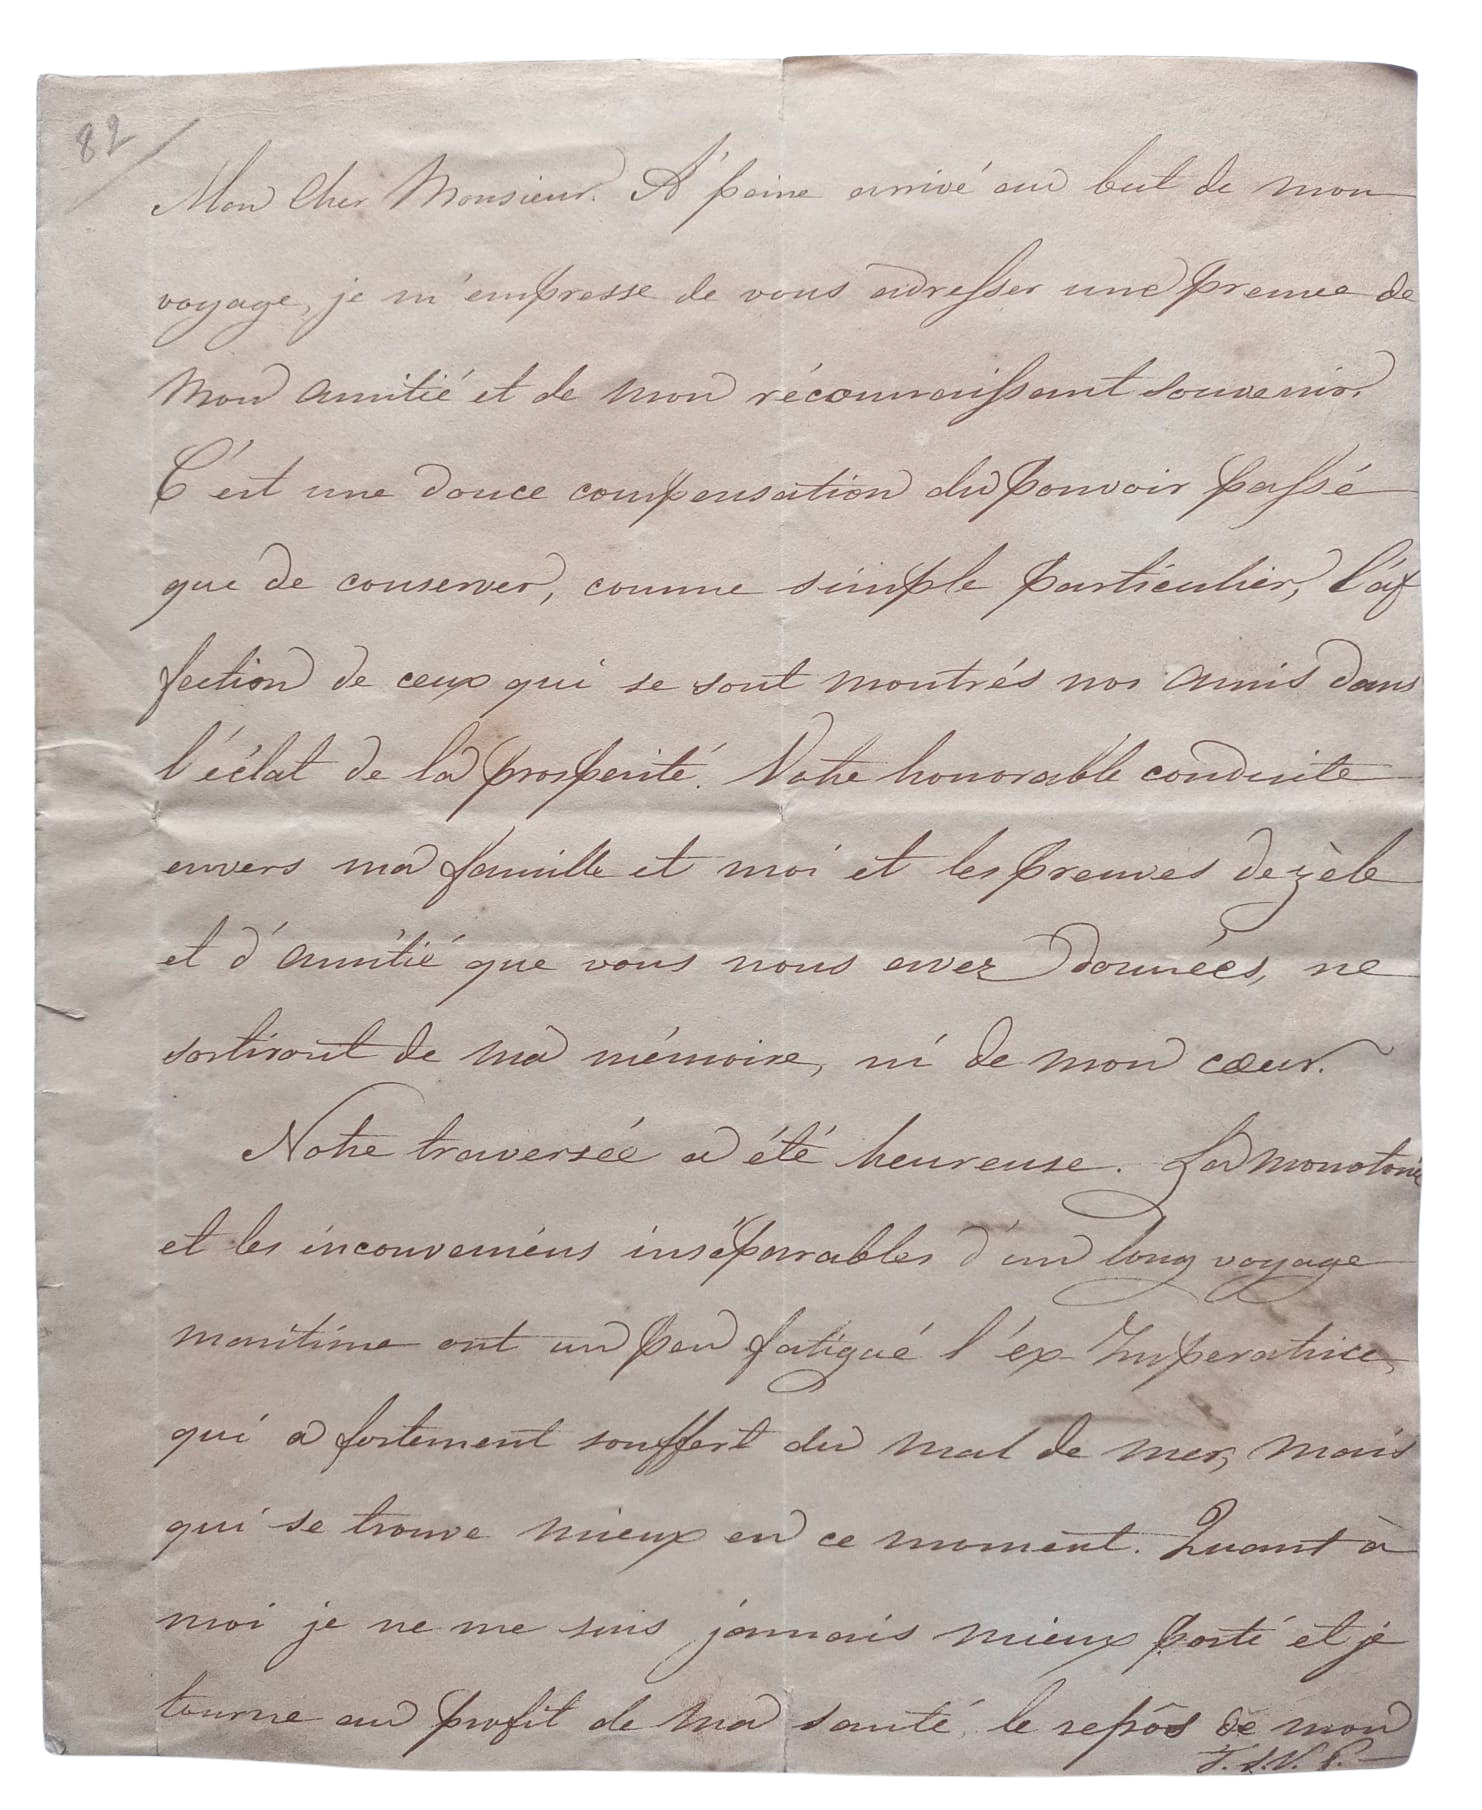 82
Mon cher Monsieur. A' peine arrivé au but de mon
voyage, je m'empresse de vous adresser une preuve de
mon amitié et de mon réconnaissant souvenir.
C'est une douce compensation du pouvoir passé
que de conserver, comme simple particulier, l'af
fection de ceux qui se sont montrés nos amis dans
l'éclat de la prosperité. Votre honorable conduite
envers ma famille et moi et les preuves de zèle
et d'amitié que vous nous avez données, ne
sortiront de ma mémoire, ni de mon cœur.
Notre traversée a été heureuse. La monotonie
et les inconveniéns inséparables d'un long voyage
maritime ont un peu fatigué l'ex-Imperatrice,
qui a fortement souffert du mal de mer, mais
qui se trouve mieux en ce moment. Quant à
moi je ne me suis jamais mieux porté et je
tourne au profit de ma santé, le repôs de mon
T. S. V. P.